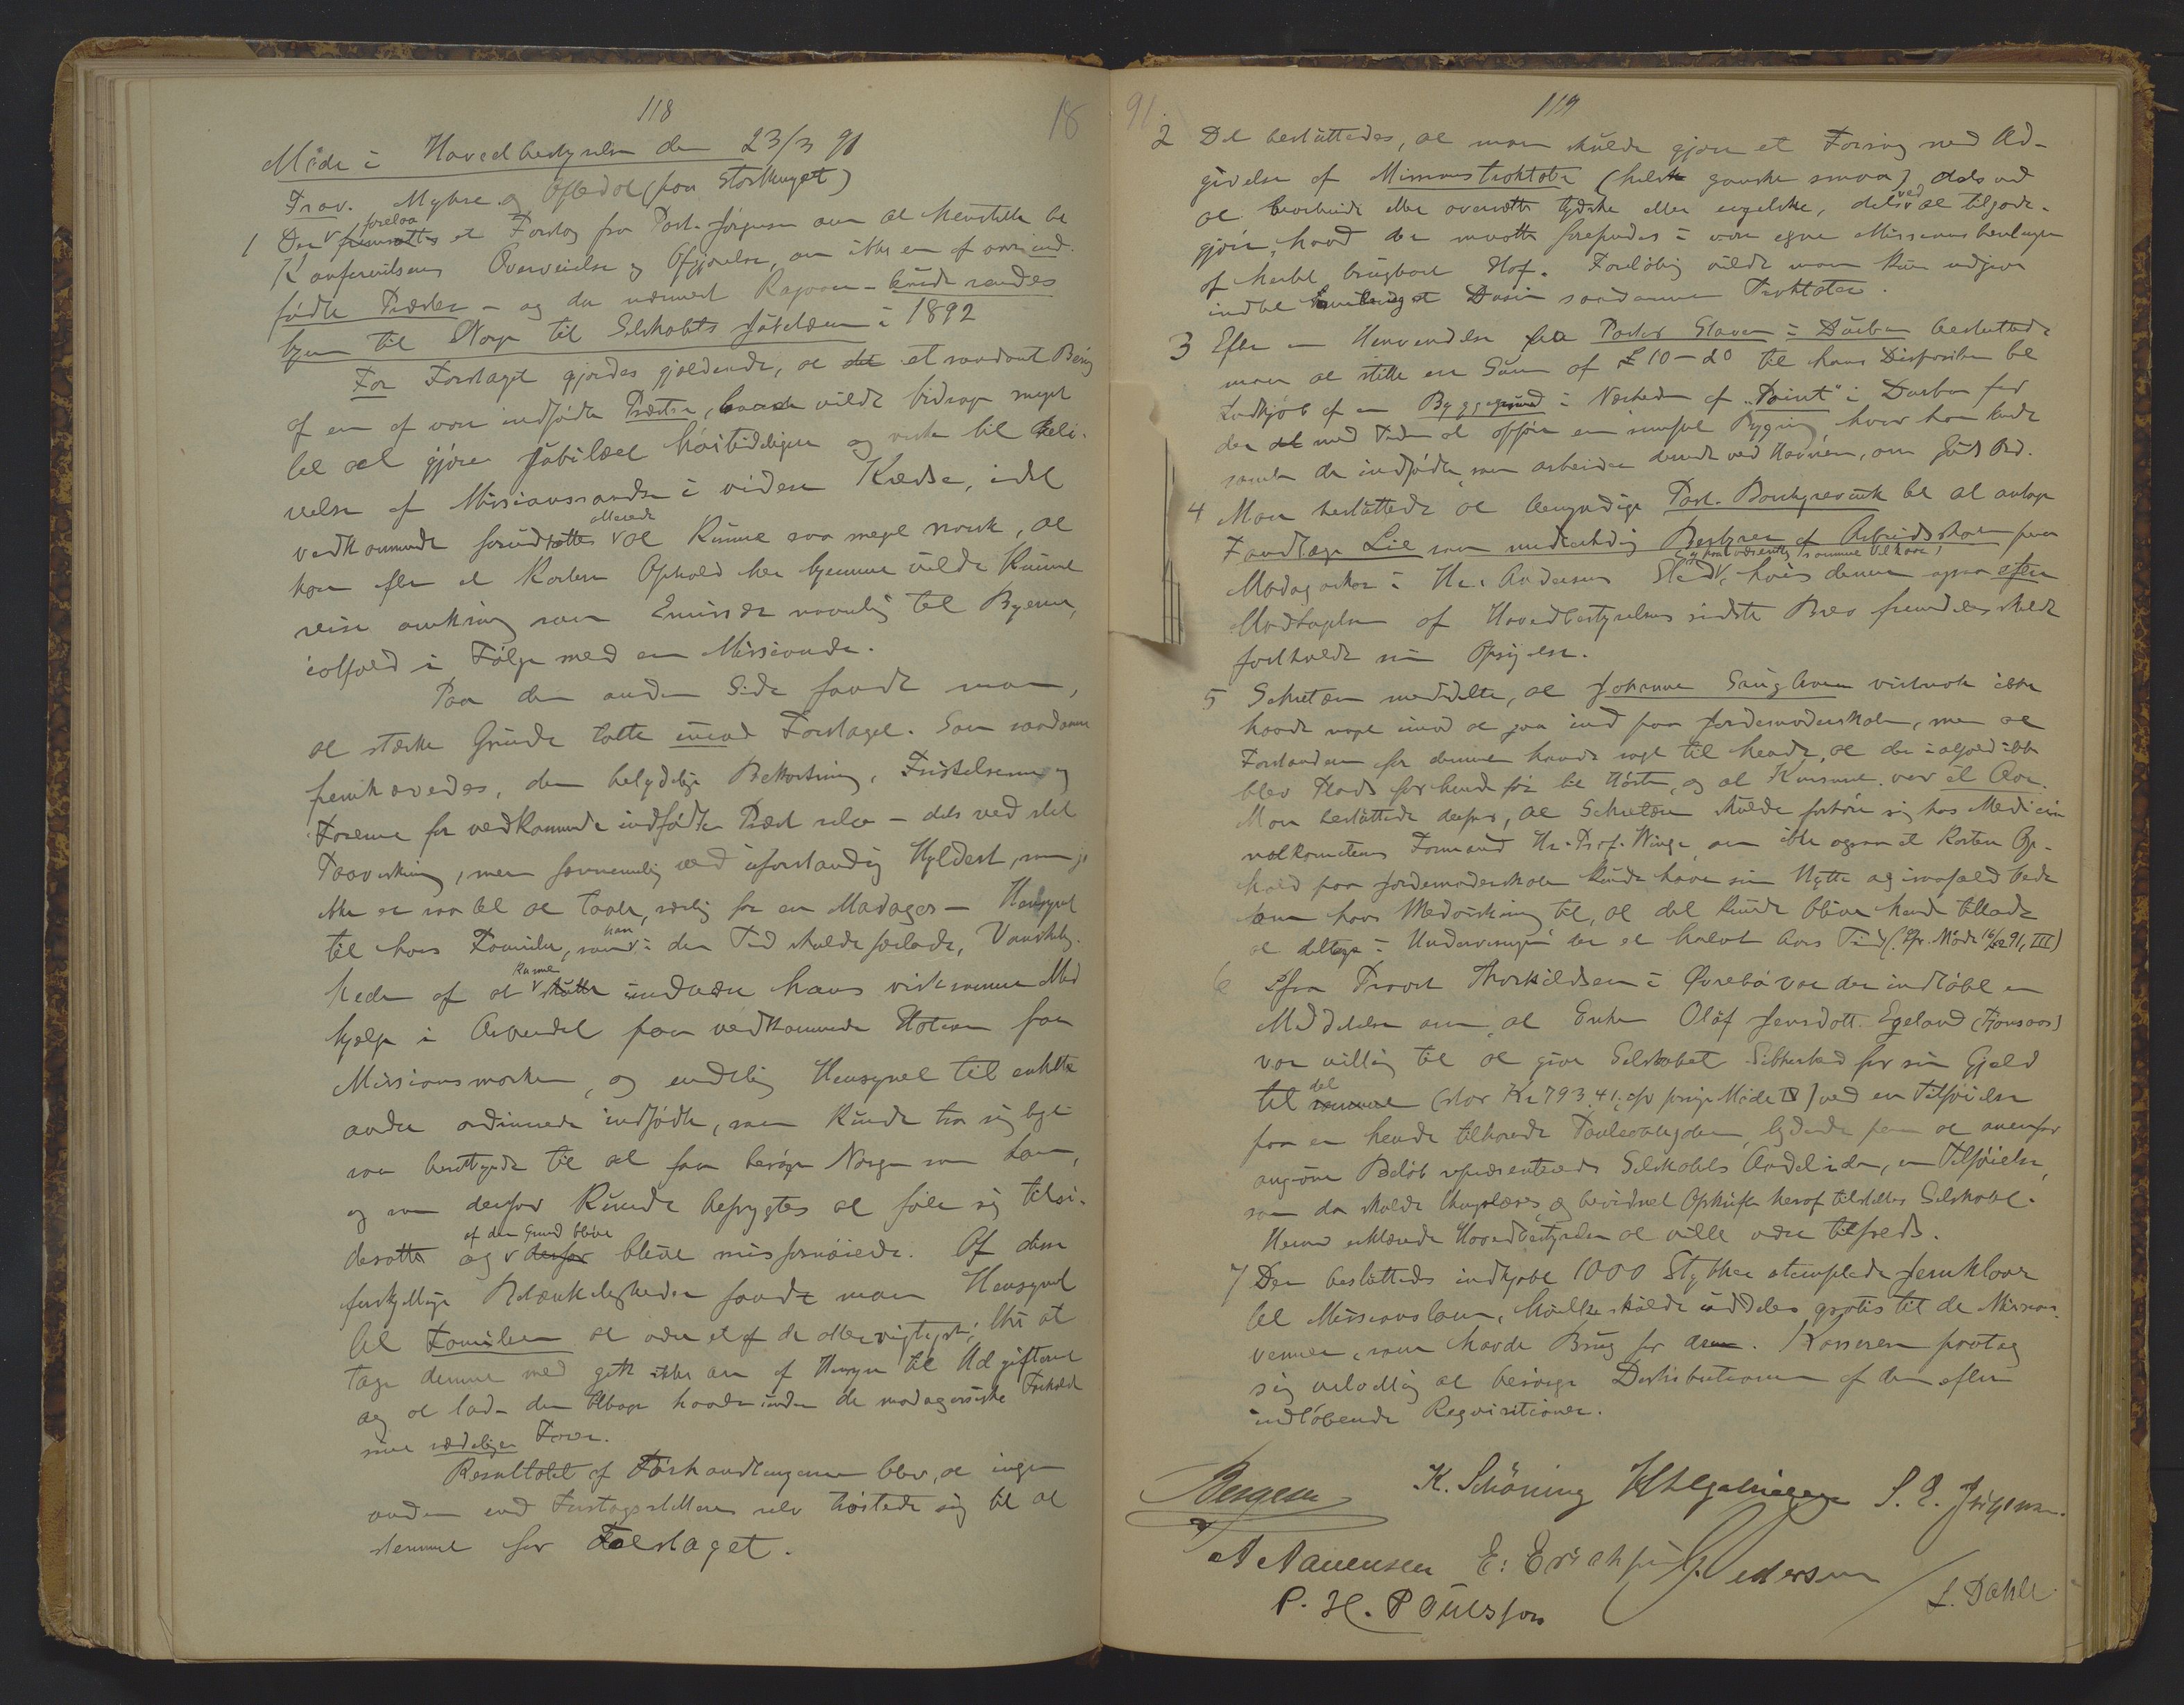 118
18
Møde i Hovedbestyrelsen den 23/3 91
Frav. Myhre og Oftedal (paa Storthinget)
1 Der forelaa fremsattes et Forslag fra Past. Jørgensen om at henstille til
Konferentsens Overveielse og Afgjørelse, om ikke en af vore ind-
fødte Præster – og da nærmest Rajaona – burde sendes
hjem til Norge til Selskabets Jubilæum i 1892
For Forslaget gjordes gjældende, at det et saadant Besøg
af en af vore indfødte Præster, vilde bidrage meget
til at gjøre Jubilæet høitideligere og virke til Opli-
velse af Missionssandsen i videre Kredse, idet
vedkommende forudsattes allerede at kunne saa meget norsk, at
han efter et kortere Ophold her hjemme vilde kunne
reise omkring som Emissær navnlig til Byerne,
ialfald i Følge med en Missionær.
Paa den anden Side fandt man,
at stærke Grunde talte imod Forslaget. Som saadanne
fremhævedes, den betydelige Bekostning, Fristelserne og
Farerne for vedkommende indfødte Præst selv – dels ved slet
Paavirkning, men fornemmelig ved uforstandig Hyldest, som jo
ikke er saa let at taale, særlig for en Madagas – Hensynet
til hans Familie, som han i den Tid skulde forlade, Vanskelig-
heden af at kunne maatte undvære hans virksomme Med
hjælp i Arbeidet paa vedkommende Station paa
Missionsmarken, og endelig Hensynet til enkelte
andre ordinerede indfødte, som kunde tro sig lige
saa berettigede til at faa besøge Norge som han,
og som derfor kunde befrygtes at føle sig tilsi-
desatte og af den Grund blive derfor blive misfornøiede. Af disse
forskjellige Betænkeligheder fandt man Hensynet
til Familien at være et af de allervigtigste; thi at
tage denne med gik ikke an af Hensyn til Udgifterne
og at lade den tilbage havde under de madagassiske Forhold
sine sædelige Farer.
Resultatet af Forhandlingerne blev, at ingen
anden end Forslagsstilleren selv trøstede sig til at
stemme for Forslaget.
91.
119
2 Det besluttedes, at man skulde gjøre et Forsøg med Ud-
givelse af Missionstraktater (helst ganske smaa) dels ved
at bearbeide eller oversætte tydske eller engelske, dels ved at tilgode-
gjøre, hvad der maatte forefindes i vore egne Missionsberetninger
af hertil brugbart Stof. Foreløbig vilde man kun udgive
indtil et Dusin saadanne Traktater.
3 Efter en Henvendelse fra Pastor Stavem i Durban besluttede
man at stille en Sum af £ 10–20 til hans Disposition til
Indkjøb af en Byggegrund i Nærheden af „Point" i Durban for
der det med Tiden at opføre en simpel Bygning hvor han kunde
samle de indfødte, som arbeider dernede ved Havnen, om Guds Ord.
4 Man besluttede at bemyndige Past. Borchgrevink til at antage
Tandlæge Lie som midlertidig Bestyrer af Arbeidsskolen paa
Madagaskar i Hr. Andersens Sted og paa væsentlig samme Vilkaar, hvis denne ogsaa efter
Modtagelsen af Hovedbestyrelsens sidste Brev fremdeles skulde
fastholde sin Opsigelse.
5 Sekretæren meddelte, at Johanne Gausslaaen vistnok ikke
havde noget imod at gaa ind paa Jordemoderskolen, men at
Forstanderen for denne havde sagt til hende, at der i alfald ikke
blev Plads for hende før til Høsten, og at Kursset var et Aar.
Man besluttede derfor, at Sekretæren skulde forhøre sig hos Medicin
nalkomiteens Formand Hr. Prof. Winge, om ikke ogsaa et kortere Op-
hold paa Jordemoderskolen kunde have sin Nytte og i saafald bede
om hans Medvirkning til, at det kunde blive hende tilladt
at deltage i Undervisningen der et halvt Aars Tid (cfr. Møde 16/2 91, III)
6 Fra Provst Thorkildsen i Øvrebø var der indløbet en
Meddelelse om, at Enken Oluf Jensdatt. Egeland
var villig til at give Selskabet Sikkerhed for sin Gjæld
til del samme (stor Kr 793.41; cfr forrige Møde IV) ved en Tilføielse
paa en hende tilhørende Panteobligation, lydende paa at ovenfor
angivne Beløb repræsenterede Selskabets Andel i den, en Tilføielse,
som da skulde thinglæses og bevidnet Afskrift heraf tilstilles Selskabet.
Hermed erklærede Hovedbestyrelsen at ville være tilfreds.
7 Der besluttedes indkjøbt 1000 Stykker stemplede
til Missionslaan, hvilke skulde uddeles gratis til de Missions-
venner, som havde Brug for dem. Kassereren paatog
sig velvillig at besørge Distributionen af dem efter
indløbende Reqvisitioner.
Bergesen K. Schöning S. E. Jørgensen.
E: Erichsen G. Pedersen
P. H. Poulsson L. Dahle